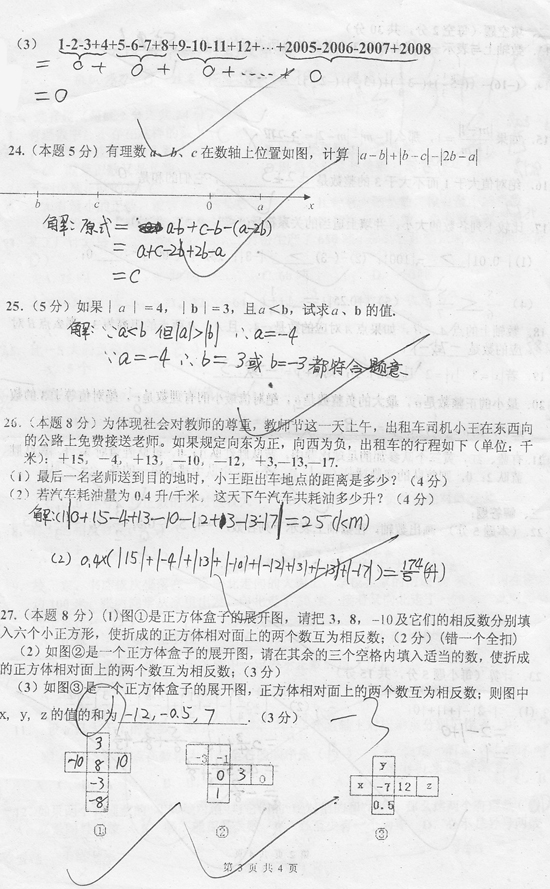 (3) 1-2-3+4+5-6-7+8+9-10-11+12+…+2005-2006-2007+2008
= 0 + 0 + 0 +……+ 0
= 0
24.（本题5分）有理数a、b、c在数轴上位置如图，计算 |a−b|+|b−c|−|2b−a|
b c 0 a x
解：原式= a-b+c-b-(a-2b)
= a+c-2b+2b-a
= c
25.（5分）如果|a|=4，|b|=3，且a<b，试求a、b的值.
解：∵a<b 但|a|>|b| ∴a=-4
∵a=-4 ∴b=3或b=-3都符合题意
26.（本题8分）为体现社会对教师的尊重，教师节这一天上午，出租车司机小王在东西向
的公路上免费接送老师。如果规定向东为正，向西为负，出租车的行程如下（单位：千
米）：+15，-4，+13，-10，-12，+3,-13,-17.
(1) 最后一名老师送到目的地时，小王距出车地点的距离是多少？（4分）
(2) 若汽车耗油量为0.4升/千米，这天下午汽车共耗油多少升？（4分）
解:(1)|0+15-4+13-10-12+3-13-17|=25(km)
(2) 0.4×(|15|+|-4|+|13|+|-10|+|-12|+|3|+|-13|+|-17|)=174/5(升)
27.（本题8分）(1)图①是正方体盒子的展开图，请把3，8，-10及它们的相反数分别填
入六个小正方形，使折成的正方体相对面上的两个数互为相反数；（2分）（错一个全扣）
（2）如图②是一个正方体盒子的展开图，请在其余的三个空格内填入适当的数，使折成
的正方体相对面上的两个数互为相反数；（3分）
（3）如图③是一个正方体盒子的展开图，正方体相对面上的两个数互为相反数；则图中
x, y, z的值的和为 -12,-0.5,7 .（3分） -3
3
-10 8 10
-3
-8
①
-3 -1
0 3 0
1
②
y
x -7 12 z
0.5
③
第 3 页 共 4 页